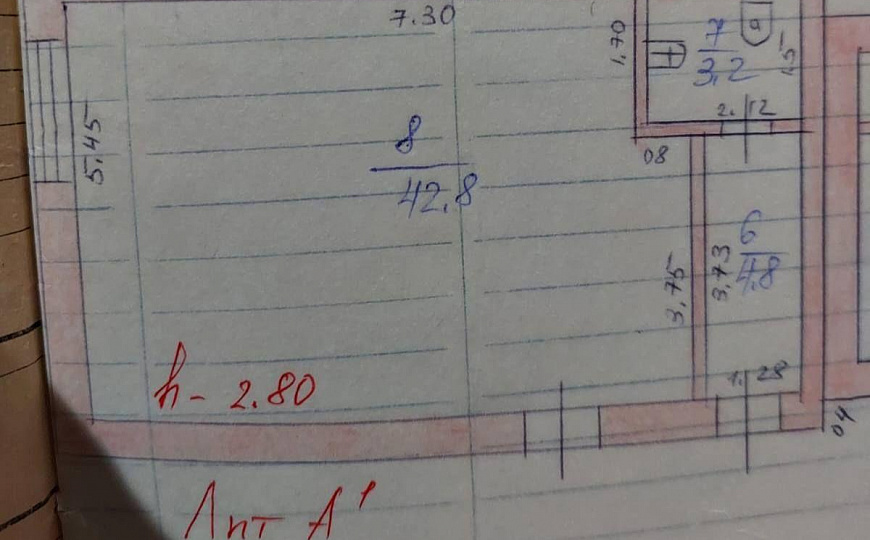 7.30
1,70
7
3,2
1,5
5.45
8
42.8
2.12
08
3,75
3,73
6
4.8
h- 2.80
1.28
04
Лит А¹